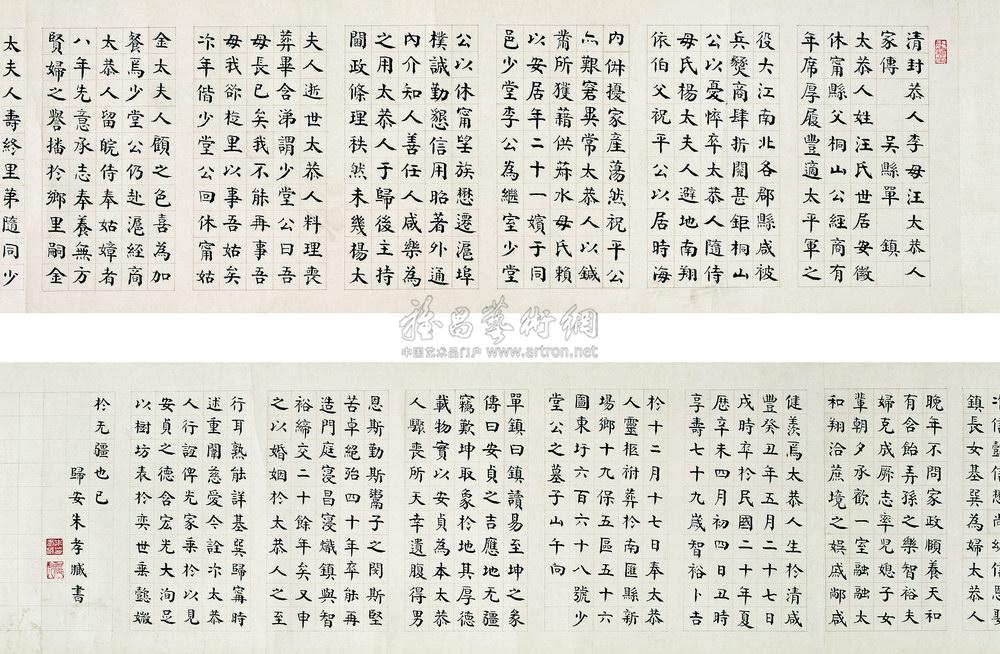 清封恭人李母汪太恭人
家傳 吳縣單 鎮
太恭人姓汪氏世居安徽
休甯縣父桐山公經商有
年席厚履豐適太平軍之
役大江南北各郡縣咸被
兵燹商肆折閱甚鉅桐山
公以憂悴卒太恭人隨侍
母氏楊太夫人避地南翔
依伯父祝平公以居時海
內俶擾家產蕩然祝平公
亦艱窘異常太恭人以鍼
黹所獲藉供菽水母氏賴
以安居年二十一嬪于同
邑少堂李公為繼室少堂
公以休甯望族懋遷滬埠
樸誠勤懇信用昭著外通
內介知人善任人咸樂為
之用太恭人于歸後主持
閫政條理秩然未幾楊太
夫人逝世太恭人料理喪
葬畢含涕謂少堂公曰吾
母長已矣我不能再事吾
母我欲旋里以事吾姑矣
次年偕少堂公回休甯姑
金太夫人顧之色喜為加
餐焉少堂公仍赴滬經商
太恭人留皖侍奉姑嫜者
八年先意承志奉養無方
賢婦之譽播於鄉里嗣金
太夫人壽終里第隨同少
雅昌藝術網
中国艺术品门户 www.artron.net
鎮長女基巽為婦太恭人
晚年不問家政頤養天和
有含飴弄孫之樂智裕夫
婦克成厥志率兒媳子女
輩朝夕承歡一室融融太
和翔洽蔗境之娛戚鄰咸
健羨焉太恭人生於清咸
豐癸丑年五月二十七日
戌時卒於民國二十年夏
歷辛未四月初四日丑時
享壽七十九歲智裕卜吉
於十二月十七日奉太恭
人靈柩祔葬於南匯縣新
場鄉十九保五區五十六
圖東圩六百六十八號少
堂公之墓子山午向
單鎮曰鎮讀易至坤之彖
傳曰安貞之吉應地无疆
竊歎坤取象於地其厚德
載物實以安貞為本太恭
人驟喪所天幸遺腹得男
恩斯勤斯鬻子之閔斯堅
苦卓絕殆四十年卒能再
造門庭寖昌寖熾鎮與智
裕締交二十餘年矣又申
之以婚姻於太恭人之至
行耳熟能詳基巽歸甯時
述重闈慈愛今詮次太恭
人行誼俾光來乘於以見
安貞之德含宏光大洵足
以樹坊表於奕世垂懿媺
於无疆也已
歸安朱孝臧書